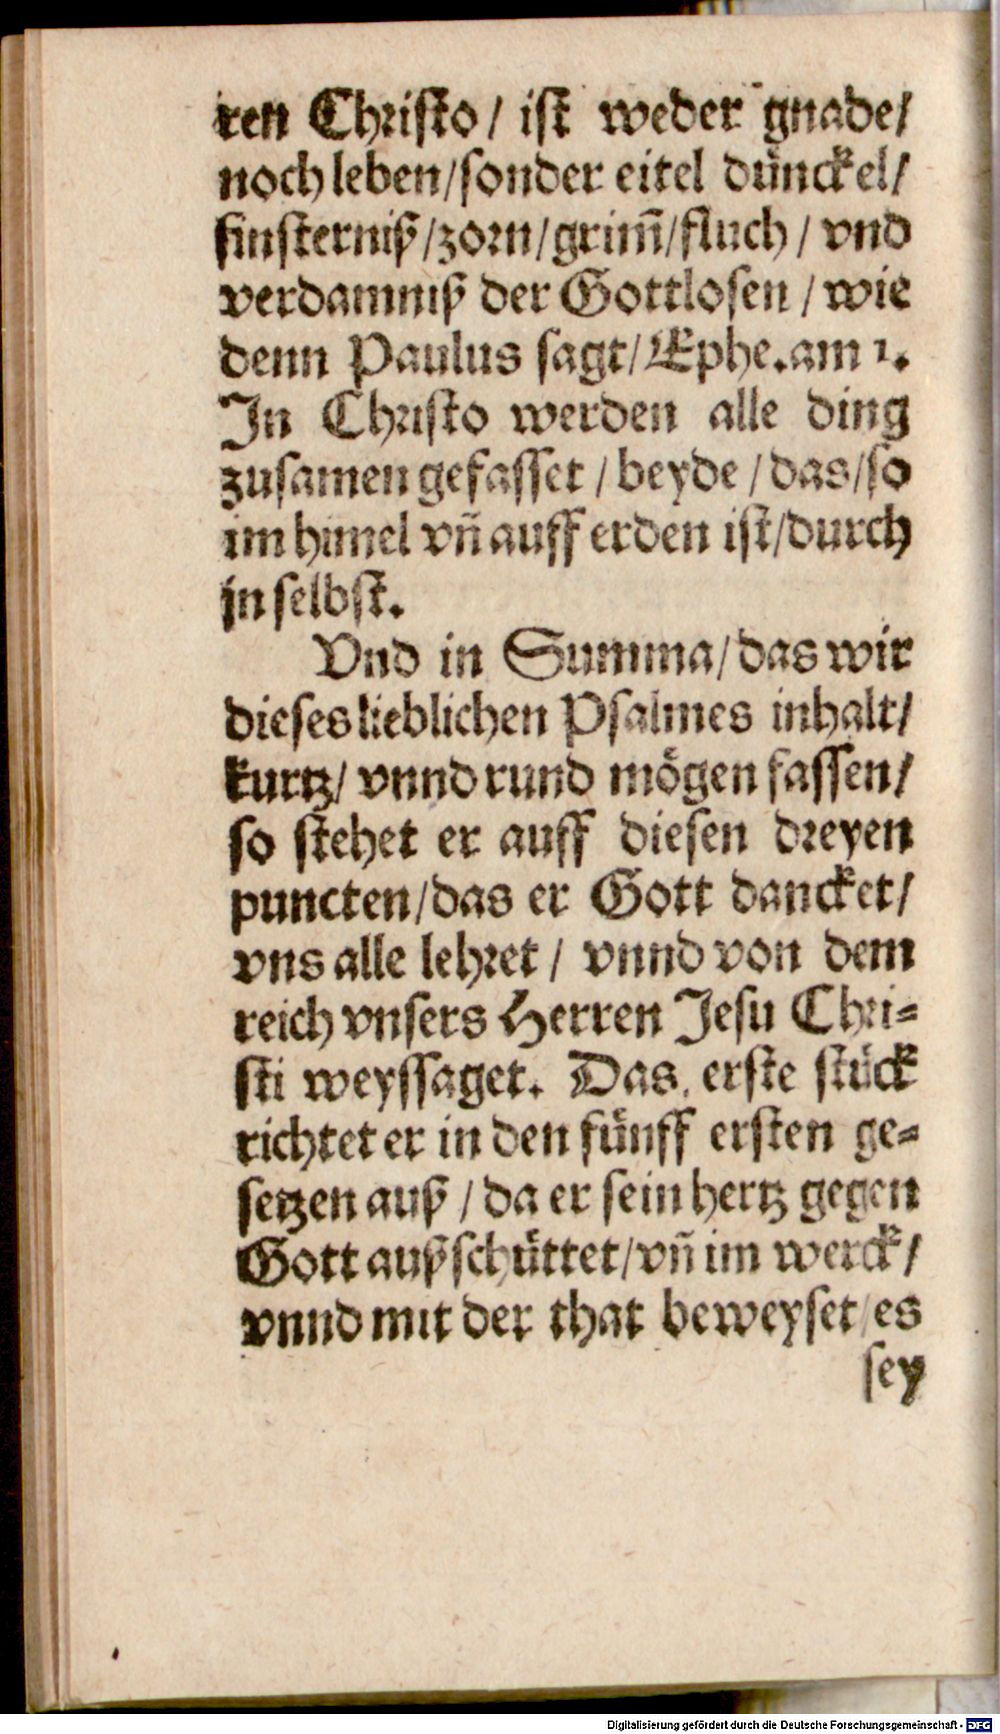 ren Christo / ist weder gnade /
noch leben / sonder eitel dünckel /
finsterniß / zorn / grim̃ / fluch / vnd
verdamniß der Gottlosen / wie
denn Paulus sagt / Ephe. am 1.
In Christo werden alle ding
zusamen gefasset / beyde / das / so
im himel vñ auff erden ist / durch
jn selbst.
Vnd in Summa / das wir
dieses lieblichen Psalmes inhalt /
kurtz / vnnd rund mögen fassen /
so stehet er auff diesen dreyen
puncten / das er Gott dancket /
vns alle lehret / vnnd von dem
reich vnsers Herren Jesu Chri-
sti weyssaget. Das erste stück
richtet er in den fünff ersten ge-
setzen auß / da er sein hertz gegen
Gott außschüttet / vñ im werck /
vnnd mit der that beweyset / es
sey
Digitalisierung gefördert durch die Deutsche Forschungsgemeinschaft - DFG